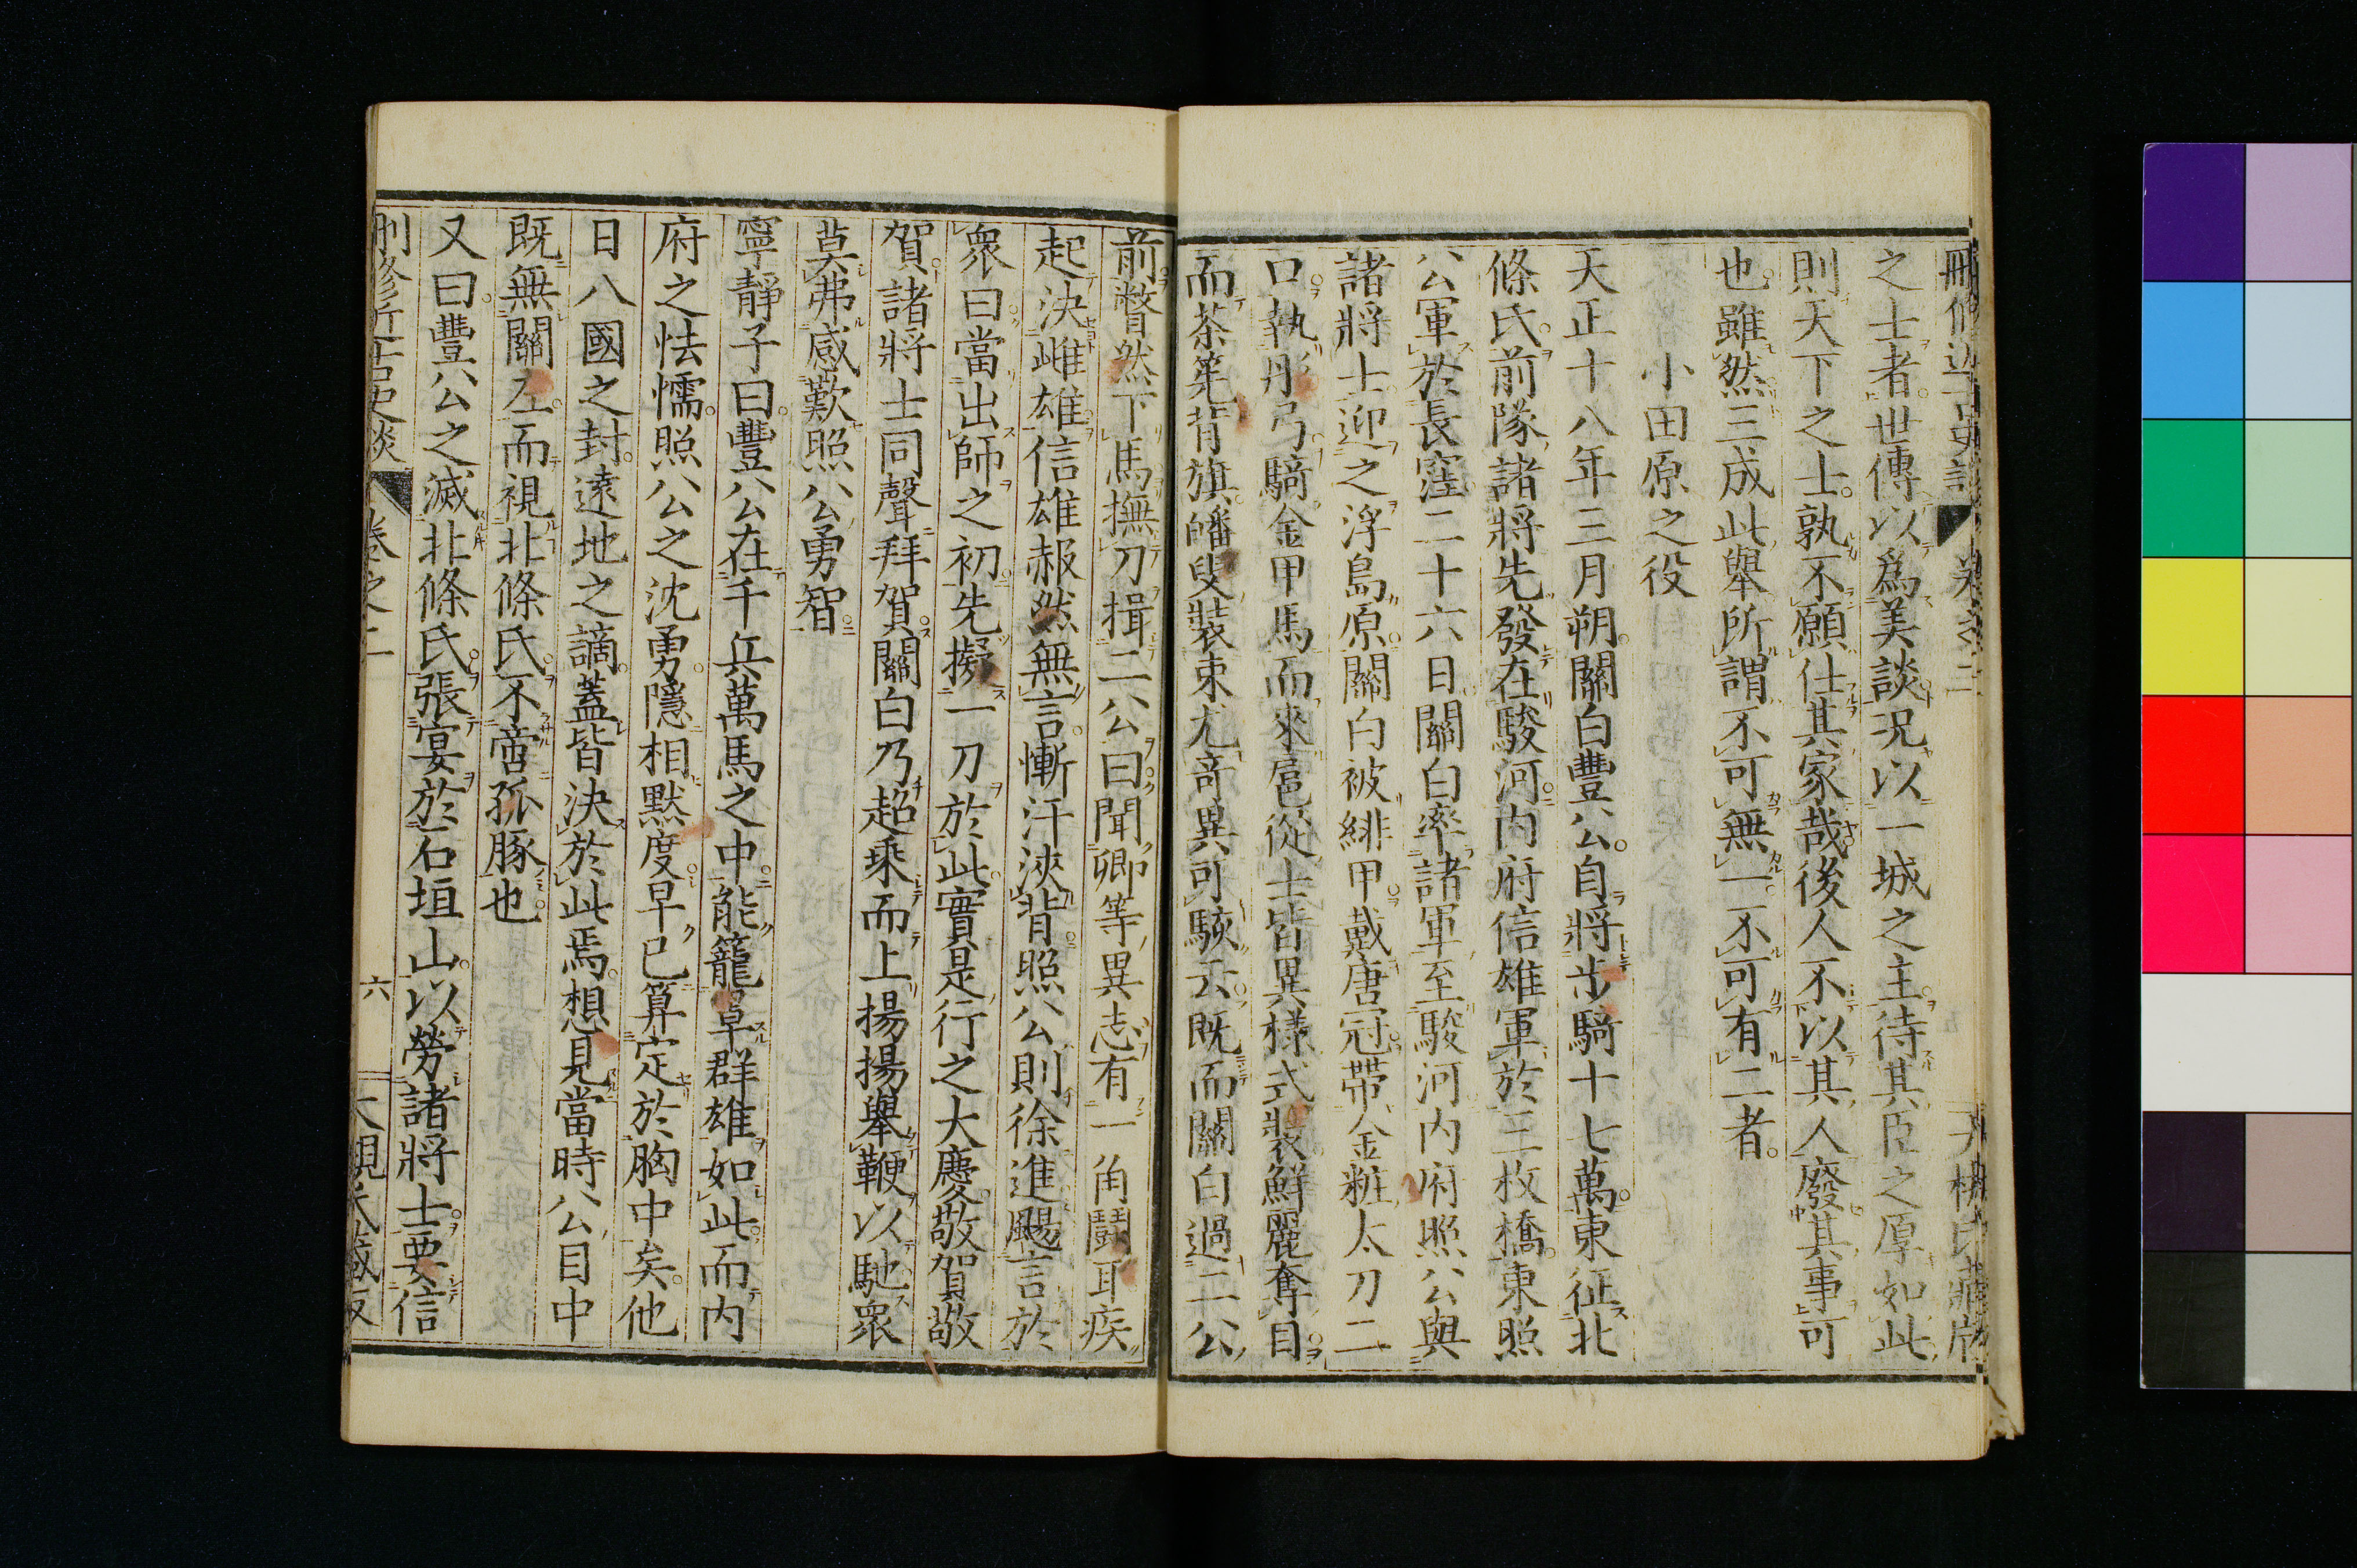 之士者世傳以爲美談况以一城之主待其臣之厚如此
則天下之士孰不願仕其家哉後人不以其人廢其事可
也雖然三成此舉所謂不可無一不可有二者
小田原之役
天正十八年三月朔關白豐公自將步騎十七萬東征北
條氏前隊諸將先發在駿河內府信雄軍於三枚橋東照
公軍於長窪二十六日關白率諸軍至駿河內府照公與
諸將士迎之浮島原關白被緋甲戴唐冠帶金粧太刀二
口執彤弓騎金甲馬而來扈從士皆異樣式裝鮮麗奪目
而茶筅背旗皤叟裝束尤奇異可駭云既而關白過二公
前瞥然下馬撫刀揖二公曰聞卿等異志有一角鬪耳疾
起決雌雄信雄赧然無言慚汗浹背照公則徐進颺言於
衆曰當出師之初先擬一刀於此實是行之大慶敬賀敬
賀諸將士同聲拜賀關白乃超乘而上揚揚舉鞭以馳衆
莫弗感歎照公勇智
寧靜子曰豐公在千兵萬馬之中能籠罩群雄如此而內
府之怯懦照公之沈勇隱相默度早已算定於胸中矣他
日八國之封遠地之謫蓋皆決於此焉想見當時公目中
既無關左而視北條氏不啻孤豚也
又曰豐公之滅北條氏張宴於石垣山以勞諸將士要信
刪修近古史談 卷之二 六 大槻氏藏版